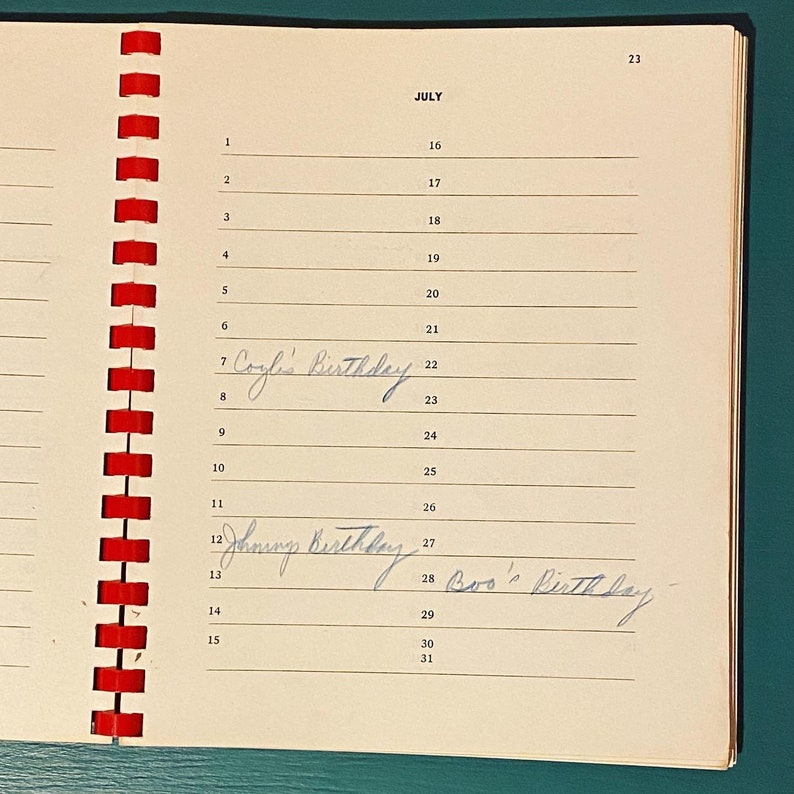 23
JULY
1 16
2 17
3 18
4 19
5 20
6 21
7 Coyle's Birthday 22
8 23
9 24
10 25
11 26
12 Johnny's Birthday 27
13 28 Boo's Birthday
14 29
15 30
31